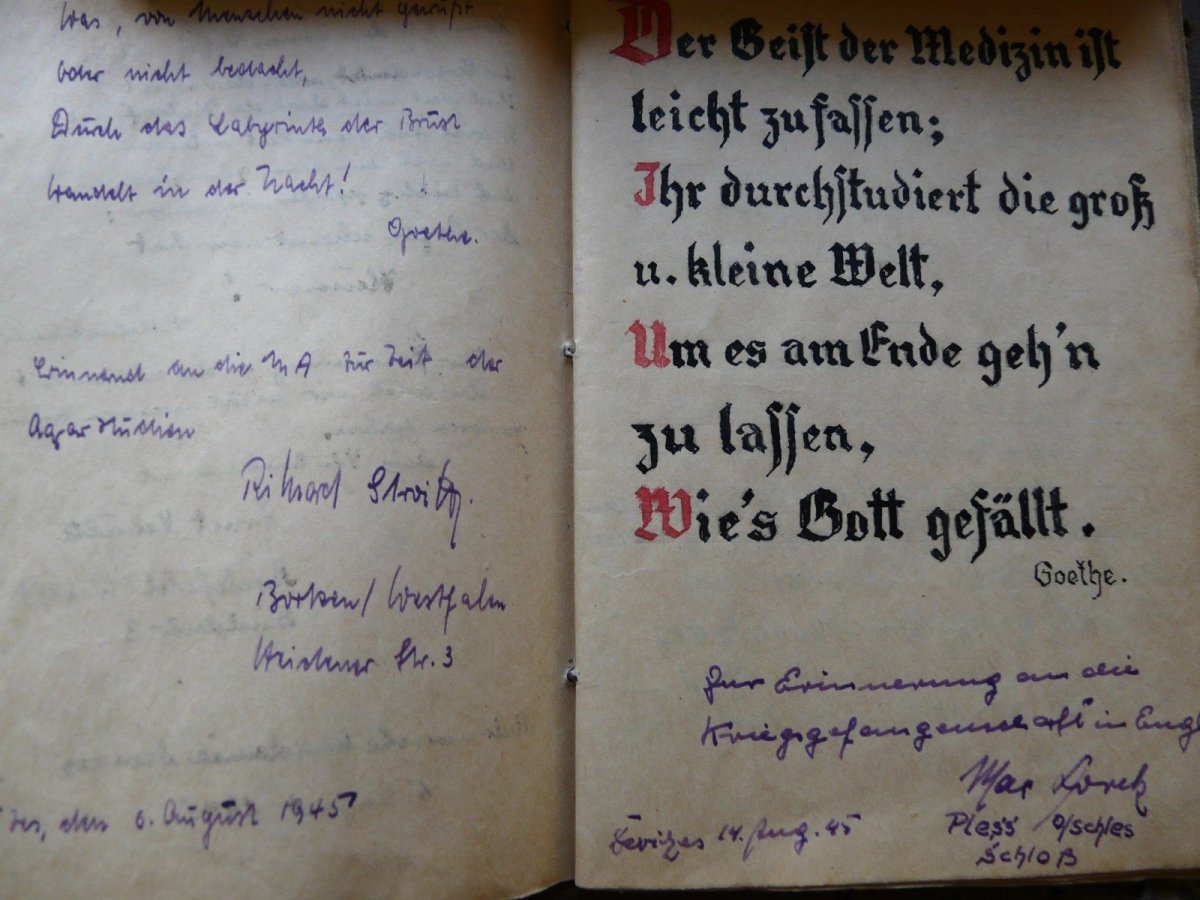 Was, von Menschen nicht gewußt
Oder nicht bedacht,
Durch das Labyrinth der Brust
Wandelt in der Nacht!
Goethe.
Erinnernd an die Zeit der
Agarstudien
Borken/Westfalen
Str. 3
den 6. August 1945
Der Geist der Medizin ist
leicht zu fassen;
Ihr durchstudiert die groß
u. kleine Welt,
Um es am Ende geh'n
zu lassen,
Wie's Gott gefällt.
Goethe.
Zur Erinnerung an die
Kriegsgefangenschaft in Engl
Max
Devizes 14. Aug. 45
Pless O/schles
Schloß